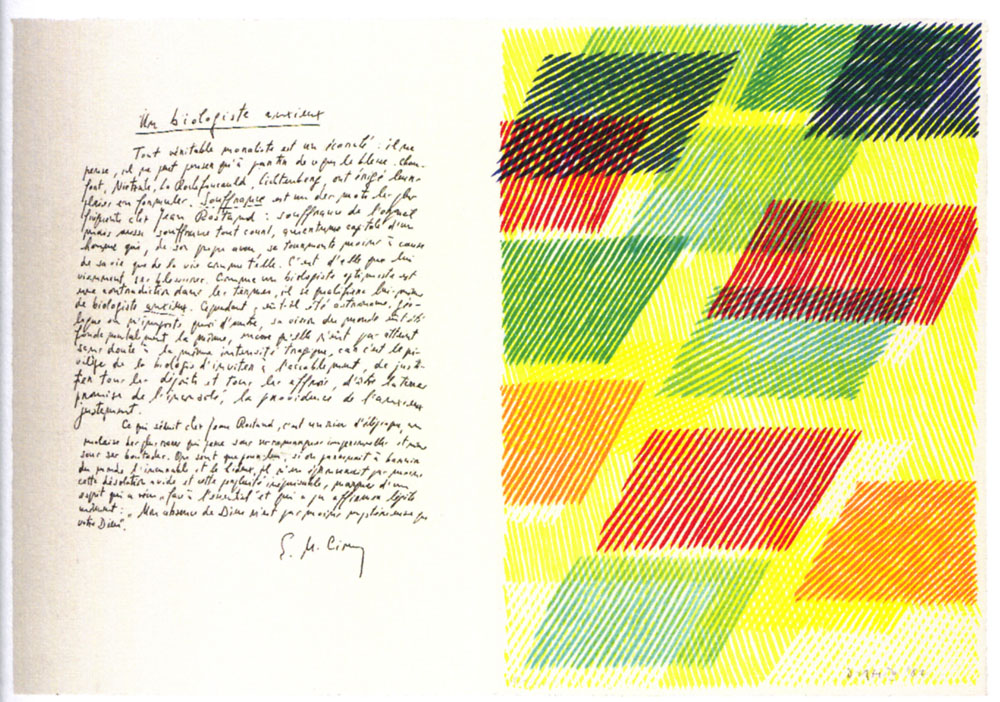 Un biologiste anxieux
Tout véritable moraliste est un écorché : il ne
pense, il ne peut penser qu'à partir de ce qui le blesse. Cham-
fort, Nietzsche, La Rochefoucauld, Lichtenberg ont érigé leurs
plaies en formules. Souffrance est un des mots les plus
fréquents chez Jean Rostand : souffrance de l'animal
mais aussi souffrance tout court, capital d'un
homme qui, de son propre aveu se tourmente moins à cause
de sa vie que de la vie comme telle. C'est d'elle que lui
viennent ses blessures. Comme un biologiste optimiste est
une contradiction dans les termes, il se qualifiera lui-même
de biologiste anxieux. Cependant, eût-il été astronome, géo-
logue ou n'importe quoi d'autre, sa vision du monde eût été
fondamentalement la même, encore qu'elle n'eût pas atteint
sans doute à la même intensité tragique, car c'est le pri-
vilège de la biologie d'inviter à l'accablement, de justi-
fier tous les dégoûts et tous les effrois, d'être la terre
promise de l'inconsolé, la providence de l'anxieux
justement.
Ce qui séduit chez Jean Rostand, c'est un rien d'
malaise des plus rares qui perce sous ses remarques impersonnelles et même
sous ses boutades. On sent que pour lui, si on parvenait à bannir
du monde l'innommable et le hideux, il n'en éprouverait pas moins
cette désolation avide et cette perplexité inépuisable, marques d'un
esprit qui a voué sa foi à l'essentiel et qui a pu affirmer légiti-
mement : "Mon absence de Dieu n'est pas moins mystérieuse que
votre Dieu".
E. M. Cioran